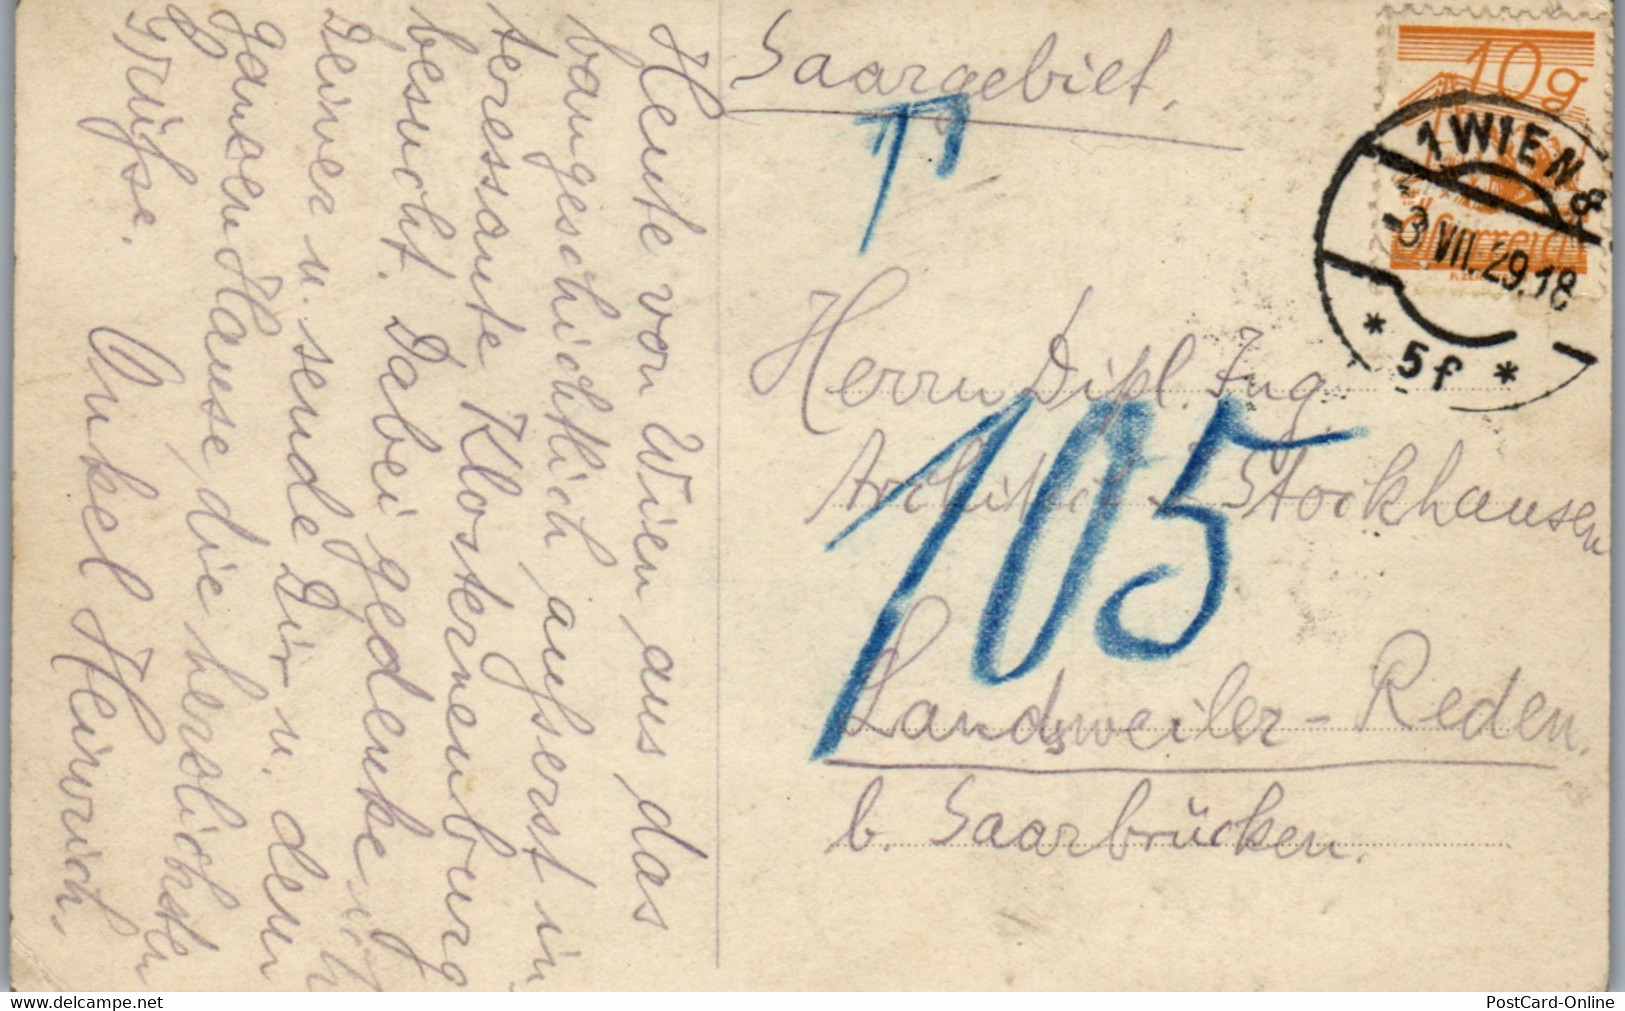 Heute von Wien aus das
baugeschichtlich aufserst in
teressante Klosterneuburg
besucht. Dabei gedenke ich
Deiner u. sende Dir u. dem
ganzen Hause, die herzlichsten
Grüfse.
Onkel Heinrich.
Saargebiet.
10g
1 WIEN 8
-3 VII. 29. 18
* 5f *
Österreich
Herrn Dipl. Ing.
Architekt Stockhausen
105
Landsweiler-Reden.
b. Saarbrücken.
www.delcampe.net
PostCard-Online